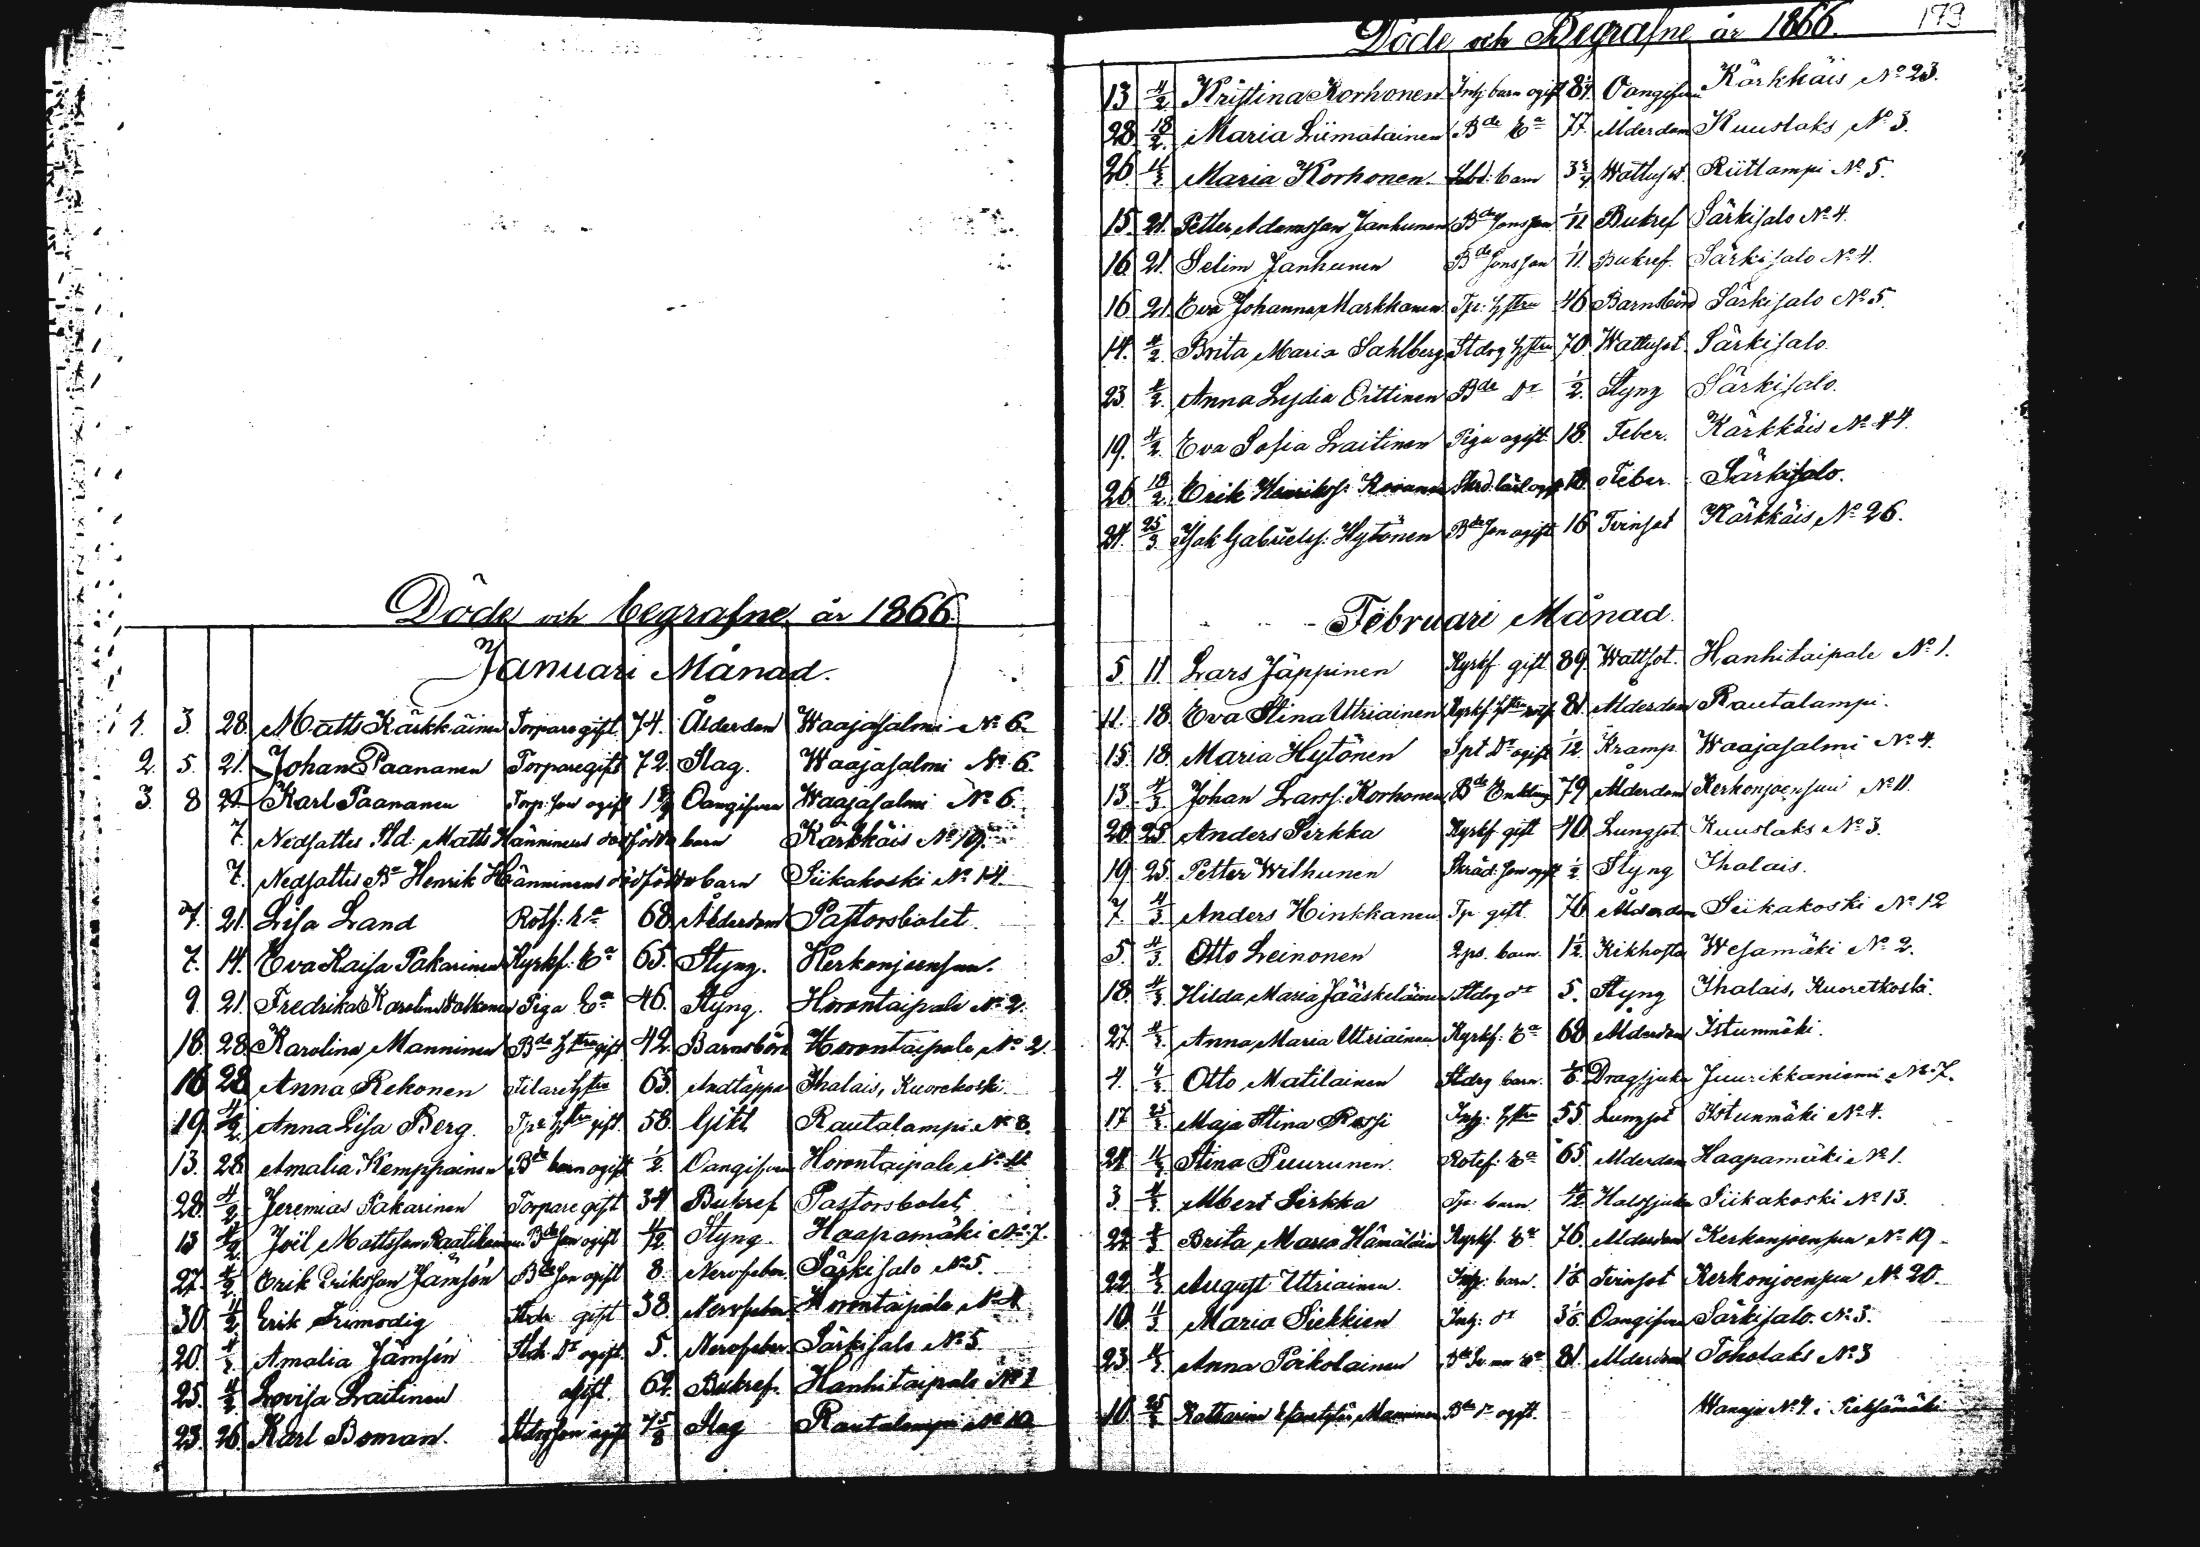 Döde och begrafne år 1866.
Januari Månad.
1. 3. 28. Matts Kärkkäinen Torpare gift. 74. Ålderdom Waajasalmi No 6.
2. 5. 21. Johan Paananen Torpare gift 72. Slag. Waajasalmi No 6.
3. 8 21. Karl Paananen Torp: son ogift Oangifven Waajasalmi No 6.
7. Nedsattes Matts Hänninens dödfödda barn Kärkkäis No 19.
7. Nedsattes Henrik Hänninens dödfödda barn Siikakoski No 14.
7. 21. Lisa Land 68. Ålderdom Pastorsbolet.
7. 14. Eva Kaisa Pakarinen Kyrkf: Ea 65. Styng. Kerkonjoensuu.
9. 21. Fredrika Karolina Piga Ea 46. Styng. Horontaipale No 2.
18. 28. Karolina Manninen Bde hstru gift 42. Barnsbörd Horontaipale No 2.
16 28 Anna Rekonen hstru 65. Andtäppa Ihalais, Kuorekoski.
19. 4/2. Anna Lisa Berg. hstru gift 58. Gikt Rautalampi No 8.
13. 28. Amalia Kemppainen Bde barn ogift 1/2. Oangifven Horontaipale
28. 4/2 Jeremias Pakarinen Torpare gift 34 Bukref Pastorsbolet
13 4/2 Joël Mattsson Raatikainen Bde son ogift Styng. Haapamäki No 7.
27. 4/2 Erik Eriksson Jämsén Bde son ogift 8. Nervfeber. Särkisalo No 5.
30 4/2 Erik Frimodig gift 38. Nervfeber. Horontaipale No 4
20. 4/2 Amalia Jämsén Dr ogift. 5. Nervfeber. Särkisalo No 5.
25. 4/2 Lovisa Laitinen ogift 62. Bukref. Hanhitaipale No 1
23. 26. Karl Boman. son ogift Slag Rautalampi No 10
Döde och Begrafne år 1866. 179
13 4/2 Kristina Korhonen Inh: barn ogift Oangifven Kärkkäis No 23.
28. 18/2. Maria Liimatainen Bde Ea 77. Ålderdom Kuuslaks No 3.
26. Maria Korhonen. barn 3 3/4 Wattusot. Riitlampi No 5.
15. 21. Petter Adamsson Janhunen Bde son 1/11 Bukref Särkisalo No 4.
16 21. Selim Janhunen Bde son 1/11. Bukref. Särkisalo No 4.
16 21. Eva Johanna Markkanen hstru 46 Barnsbörd Särkisalo No 5.
14. 4/2. Brita Maria Sahlberg hstru 70. Wattusot. Särkisalo.
23. 4/2. Anna Lydia Oittinen Bde Dr 1/2. Styng Särkisalo.
19. 4/2. Eva Sofia Laitinen Piga ogift 18. Feber. Kärkkäis
26 18/2. Erik Henrikss: Feber. Särkisalo.
24. 25/3. Isak Gabrielss: Hytönen Bde son ogift 16 Tvinsot Kärkkäis No 26.
Februari Månad.
5. 11. Lars Jäppinen Kyrkf gift 89. Wattsot. Hanhitaipale No 1.
11. 18. Eva Stina Utriainen Kyrkf hstru 81. Ålderdom Rautalampi.
15 18. Maria Hytönen Dr ogift 1/12 Kramp. Waajasalmi No 4.
13 4/3 Johan Larss: Korhonen Bde Enkling 79 Ålderdom Kerkonjoensuu No 11.
20. 25. Anders Sirkka Kyrkf gift 40 Lungsot. Kuuslaks No 3.
19 25. Petter Wilhunen Skräd: son ogift 1/2 Styng Ihalais.
7. 4/3. Anders Hinkkanen Tp gift. 76 Ålderdom Siikakoski No 12
5. 4/3. Otto Leinonen barn. 1 1/2. Kikhosta Wesamäki No 2.
18. 4/3 Hilda Maria Jääskeläinen Dr 5. Styng Ihalais, Kuoretkoski.
27. 4/3. Anna Maria Utriainen Kyrkf: Ea 68 Ålderdom Istunmäki.
4. 4/3. Otto Matilainen barn. Dragsjuka Juurikkaniemi No 7.
17 25/3. Maja Stina Rossi Inh: hstru 55 Lungsot Istunmäki No 4.
24 4/3 Stina Puurunen. Rotef: Ea 65 Ålderdom Haapamäki No 1.
3 4/3 Albert Sirkka Tp: barn Halssjuka Siikakoski No 13.
22 4/3 Brita Maria Hämäläin Kyrkf. Ea 76. Ålderdom Kerkonjoensuu No 19.
22. 4/3 August Utriainen. Inh: barn. Tvinsot Kerkonjoensuu No 20.
10. 4/3 Maria Siekkien Inh: Dr Oangifven Särkisalo. No 3.
23. 4/3. Anna Poikolainen Ea 81. Ålderdom Toholaks No 3
10. 25/3 Manninen Bde Dr ogift. Wanaja No 4 i Pieksämäki